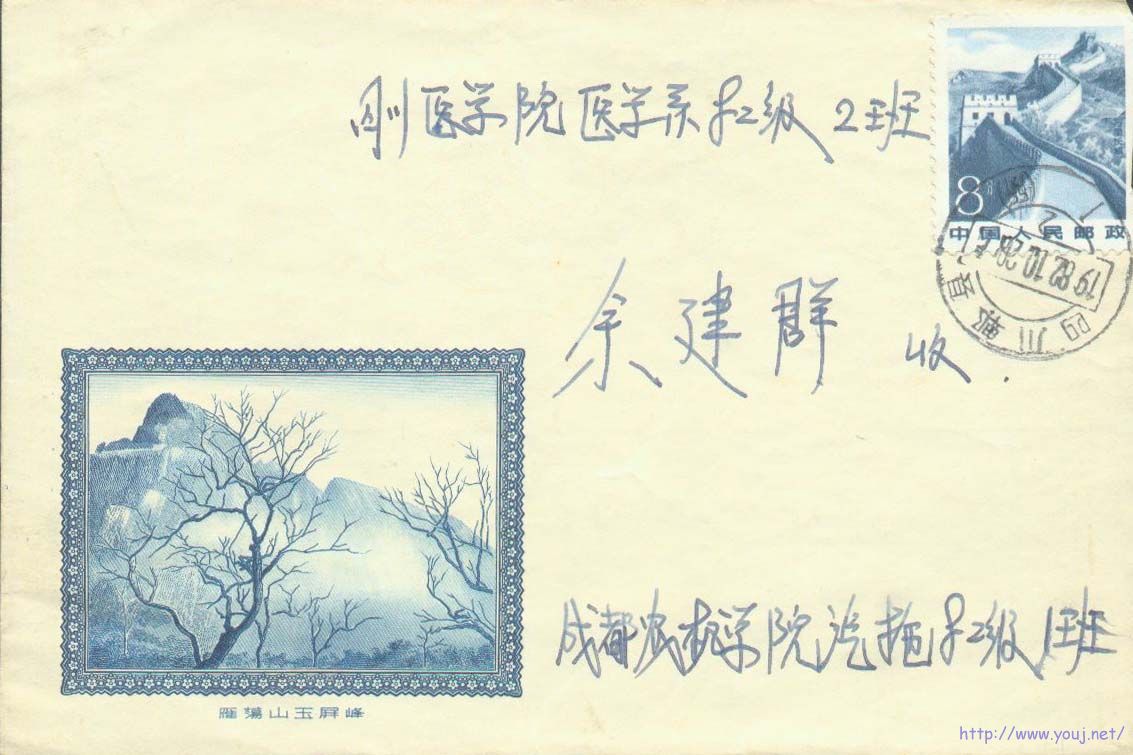 医学院医学系82级2班
8分
中国人民邮政
1982.10.28
四川
余建群 收
成都农机学院汽拖82级1班
雁荡山玉屏峰
http://www.youj.net/